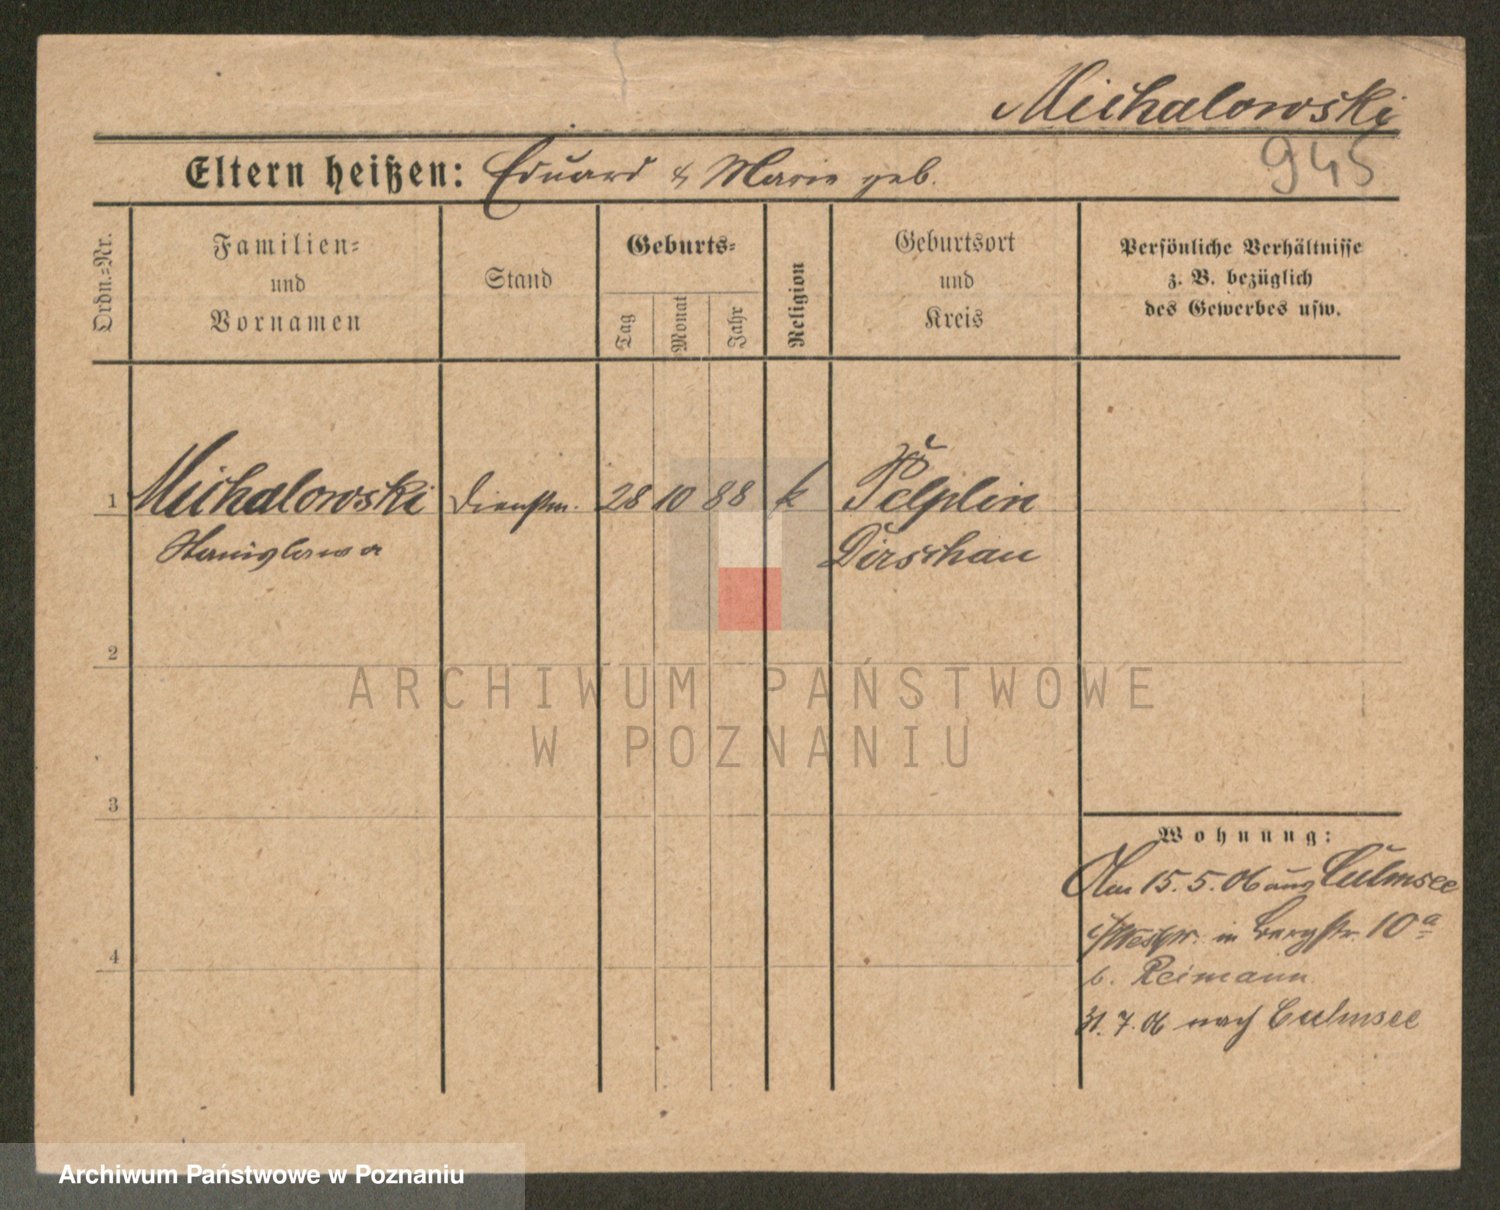 Michalowski
945
Eltern heißen: Eduard & Marie geb.
Ordn.=Nr.
Familien=
und
Vornamen
Stand
Geburts=
Tag
Monat
Jahr
Religion
Geburtsort
und
Kreis
Persönliche Verhältnisse
z. B. bezüglich
des Gewerbes usw.
1 Michalowski Dienstm. 28 10 88 k Pelplin
Stanislawa Dirschau
2
ARCHIWUM PAŃSTWOWE
W POZNANIU
3
Wohnung:
Am 15.5.06 aus Culmsee
i/Westpr. in Bergstr. 10a
b. Reimann
4
31.7.06 nach Culmsee
Archiwum Państwowe w Poznaniu